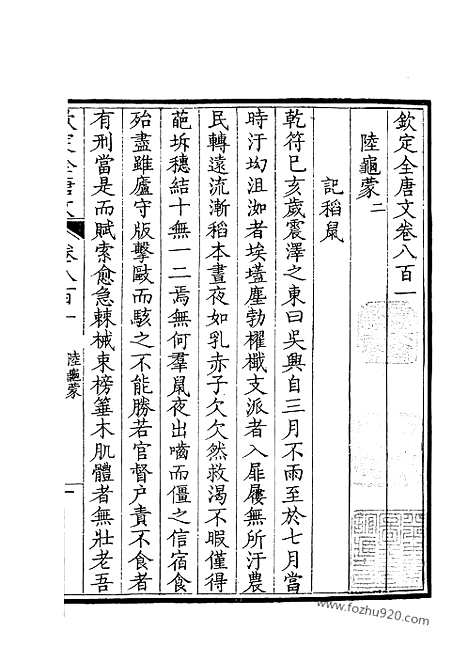 欽定全唐文卷八百一
陸龜蒙二
記稻鼠
乾符己亥歲震澤之東曰吳興自三月不雨至於七月當
時汙坳沮洳者埃𡏖塵勃櫂檝支派者入屝屨無所汙農
民轉遠流漸稻本晝夜如乳赤子欠欠然救渴不暇僅得
葩坼穗結十無一二焉無何羣鼠夜出嚙而僵之信宿食
殆盡雖廬守版擊毆而駭之不能勝若官督户責不食者
有刑當是而賦索愈急棘械束榜箠木肌體者無壯老吾
欽定全唐文
卷八百一
陸龜蒙
一
www.fozhu920.com